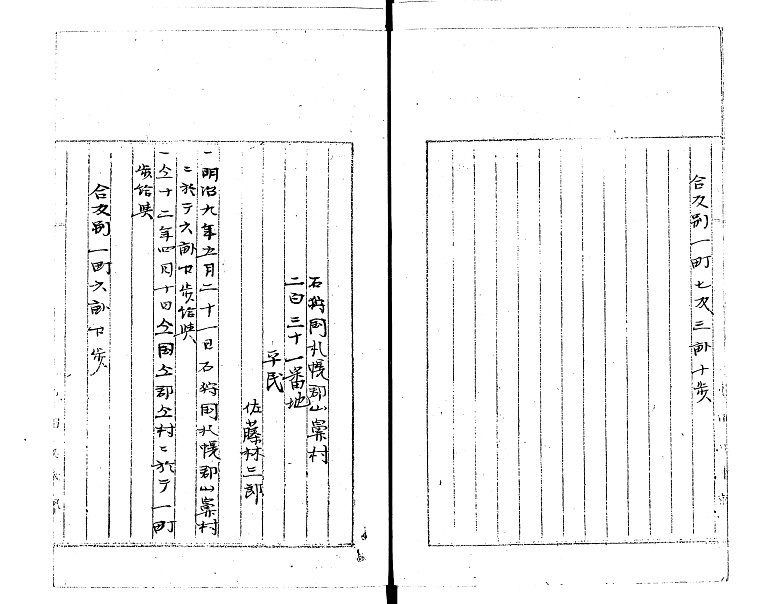 合反別一町七反三畝十歩
石狩国札幌郡山鼻村
二百三十一番地
平民
佐藤林三郎
一明治九年五月二十一日石狩国札幌郡山鼻村
ニ於テ六畝廿歩給与
一仝十二年四月十日仝国仝郡仝村ニ於テ一町
歩給与
合反別一町六畝廿歩